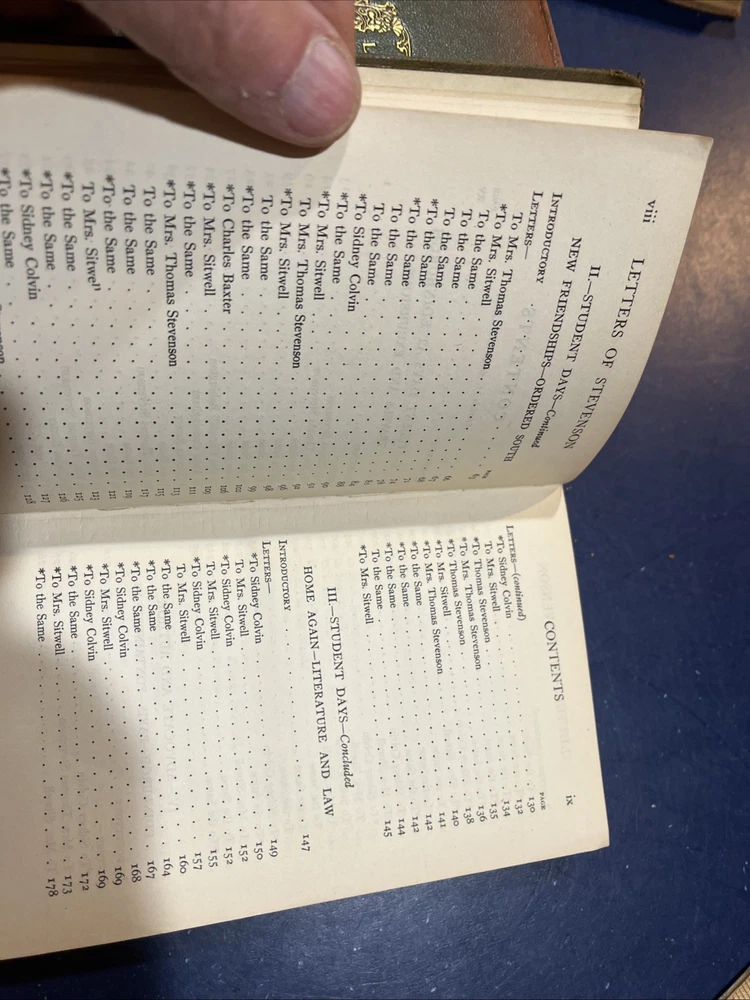 viii LETTERS OF STEVENSON
II.—STUDENT DAYS—Continued
NEW FRIENDSHIPS—ORDERED SOUTH
PAGE
INTRODUCTORY
LETTERS—
To Mrs. Thomas Stevenson
*To Mrs. Sitwell
To the Same
To the Same
To the Same
*To the Same
*To the Same
To the Same
To the Same
*To Sidney Colvin
*To the Same
*To Mrs. Sitwell
To Mrs. Thomas Stevenson
*To Mrs. Sitwell
To the Same
*To the Same
*To Charles Baxter
*To Mrs. Sitwell
*To the Same
*To Mrs. Thomas Stevenson
To the Same
To the Same
*To the Same
To Mrs. Sitwell
*To the Same
*To the Same
*To Sidney Colvin
*To the Same
CONTENTS ix
LETTERS—(continued) PAGE
*To Sidney Colvin 130
To Mrs. Sitwell 132
*To Thomas Stevenson 134
*To Mrs. Thomas Stevenson 135
*To Thomas Stevenson 136
*To Mrs. Sitwell 138
*To Mrs. Thomas Stevenson 140
*To the Same 141
*To the Same 142
*To the Same 142
To the Same 144
*To Mrs. Sitwell 145
III.—STUDENT DAYS—Concluded
HOME AGAIN—LITERATURE AND LAW
INTRODUCTORY 147
LETTERS—
*To Sidney Colvin 149
To Mrs. Sitwell 150
*To Sidney Colvin 152
To Mrs. Sitwell 152
*To Sidney Colvin 155
To Mrs. Sitwell 157
*To the Same 160
*To the Same 164
*To the Same 167
*To Sidney Colvin 168
*To Mrs. Sitwell 169
*To Sidney Colvin 169
*To the Same 172
*To Mrs. Sitwell 173
*To the Same 178